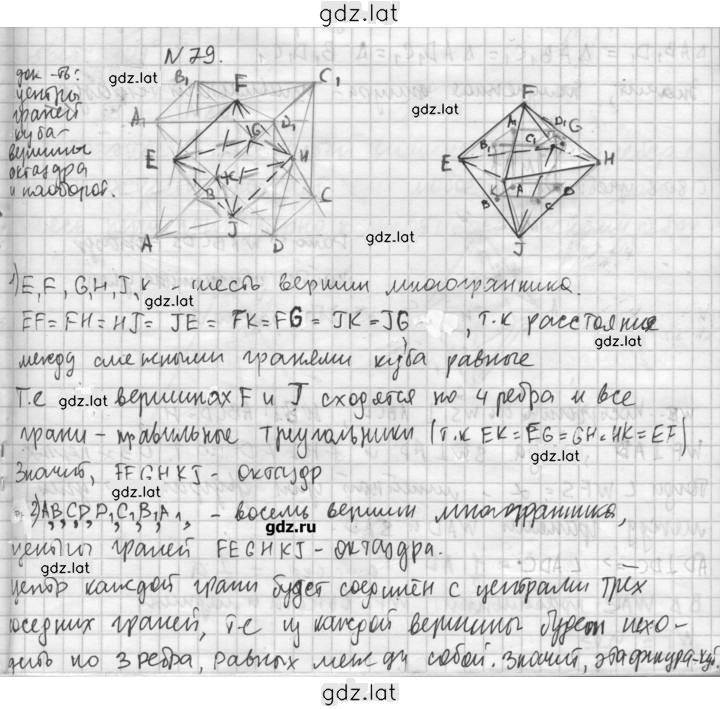 gdz.lat
N 79.
док-ть:
центры
граней
куба -
вершины
октаэдра
и наоборот.
gdz.lat
B₁ F C₁
A₁ G D₁
E K H
B C
J
A D
gdz.lat
F
A₁ D₁ G
B₁ C₁
E H
K A D
B C
J
gdz.lat
1) E, F, G, H, J, K - шесть вершин многогранника.
gdz.lat
EF = FH = HJ = JE = FK = FG = JK = JG, т.к расстояние
gdz.lat
между смежными гранями куба равные
Т.е gdz.lat вершинах F и J сходятся по 4 ребра и все
грани - правильные треугольники (т.к EK = EG = GH = HK = EF)
gdz.lat
Значит, FEGHKJ - октаэдр
gdz.lat
2) A, B, C, D, D₁, C₁, B₁, A₁, - восемь вершин многогранника,
gdz.ru
центры граней FEGHKJ - октаэдра.
gdz.lat
центр каждой грани будет соединён с центрами трех
соседних граней, т.е из каждой вершины будет исхо-
дить по 3 ребра, равных между собой. Значит, эта фигура-куб.
gdz.lat